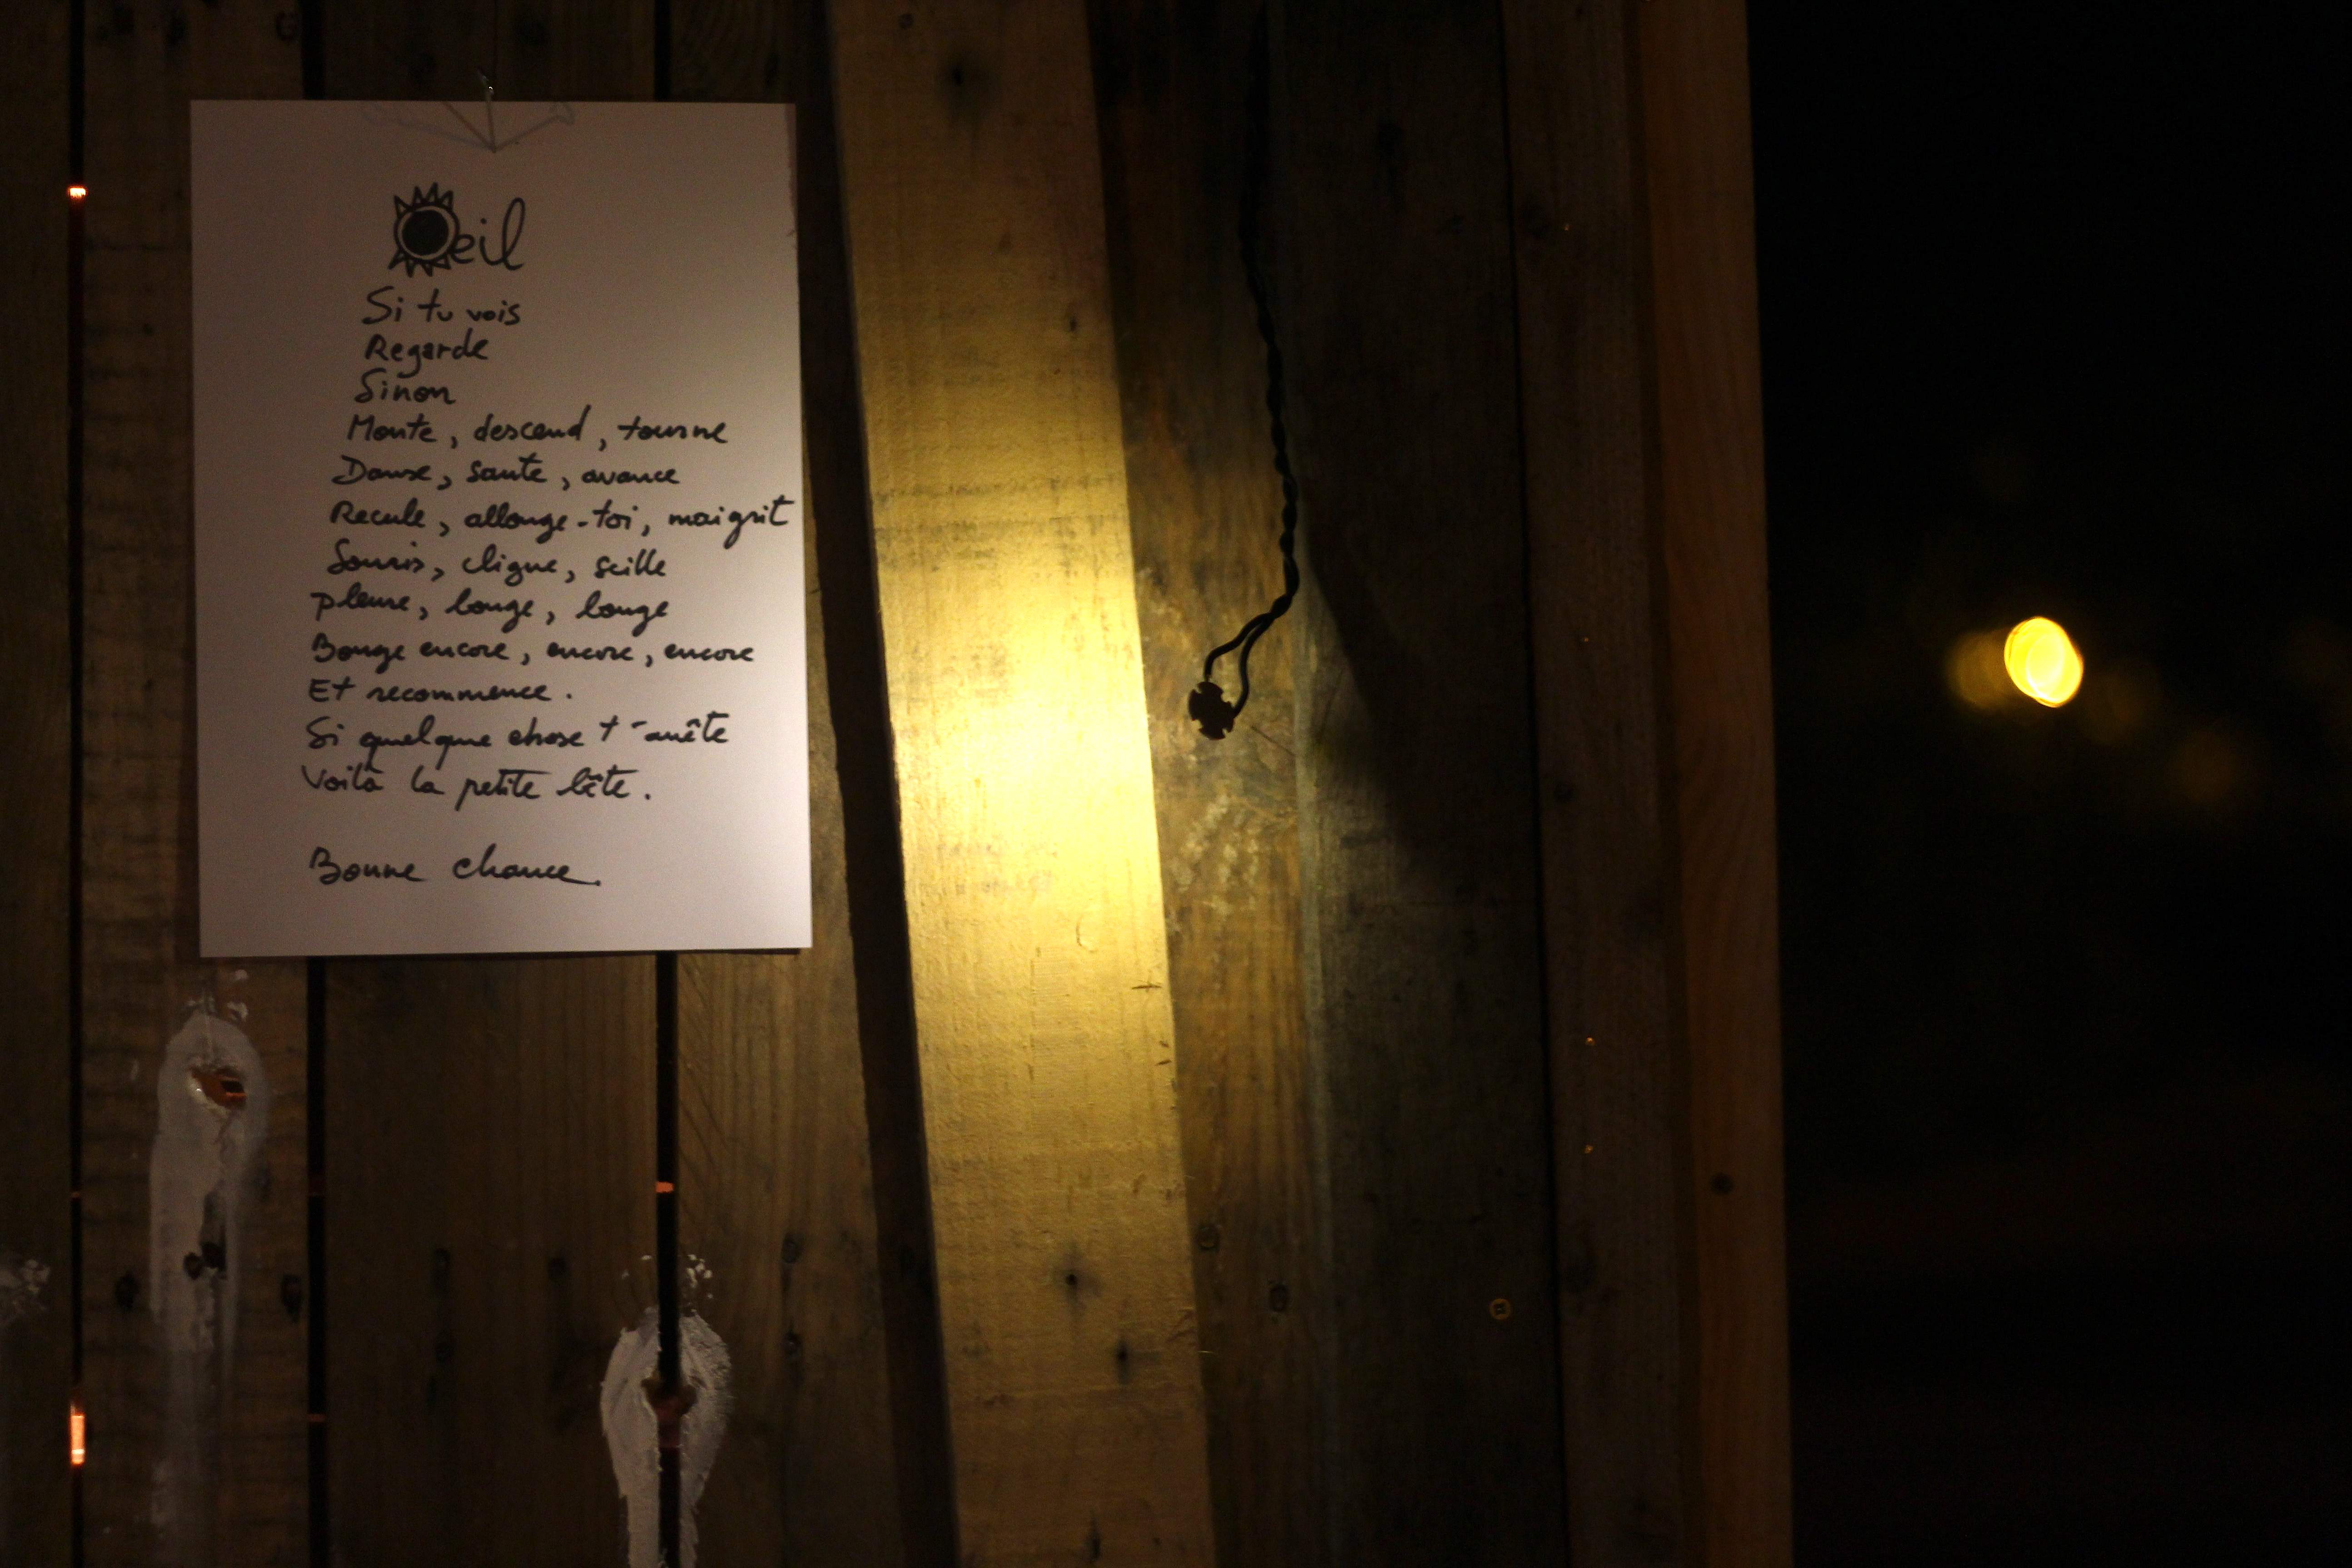 Oeil
Si tu vois
Regarde
Sinon
Monte, descend, tourne
Danse, saute, avance
Recule, allonge-toi, maigrit
Souris, cligne, scille
Pleure, bouge, bouge
Bouge encore, encore, encore
Et recommence.
Si quelque chose t'arrête
Voilà la petite bête.
Bonne chance.